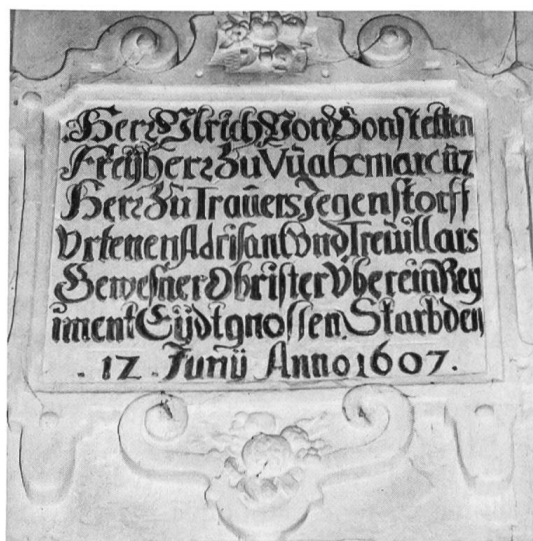 Herr Ulrich Von Bonstetten
Freÿherr Zu Vuahxmarcüz
Herr Zu Trauers Jegenstorff
Vrtenen Adrisan Und Treuillars
Gewesner Obrister Vber ein Reg
iment Eÿdtgnossen. Starb den
. 12 . Junÿ Anno 1607.